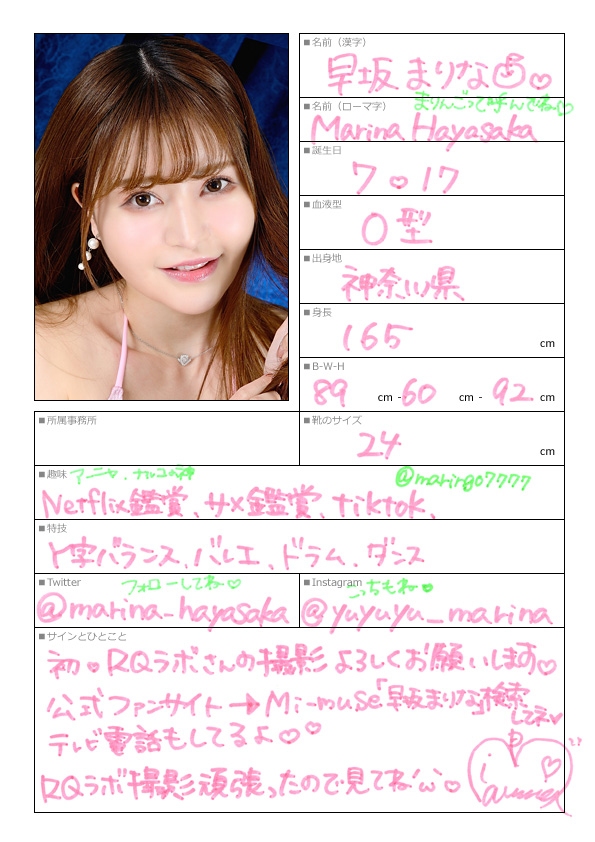 ■名前（漢字）
早坂まりな♡
■名前（ローマ字）
まりんごって呼んでね♡
Marina Hayasaka
■誕生日
7♡17
■血液型
O型
■出身地
神奈川県
■身長
165 cm
■B-W-H
89 cm -60 cm - 92 cm
■所属事務所
■靴のサイズ
24 cm
■趣味
@maringo7777
Netflix鑑賞、サメ鑑賞、tiktok、
■特技
Y字バランス、バレエ、ドラム、ダンス
■Twitter
フォローしてね♡
@marina_hayasaka
■Instagram
こっちもね♡
@yuyuyu_marina
■サインとひとこと
初♡RQラボさんの撮影よろしくお願いします♡
公式ファンサイト→Mi-muse「早坂まりな」検索
してネ♡
テレビ電話もしてるよ♡♡
RQラボ撮影頑張ったので見てね♡